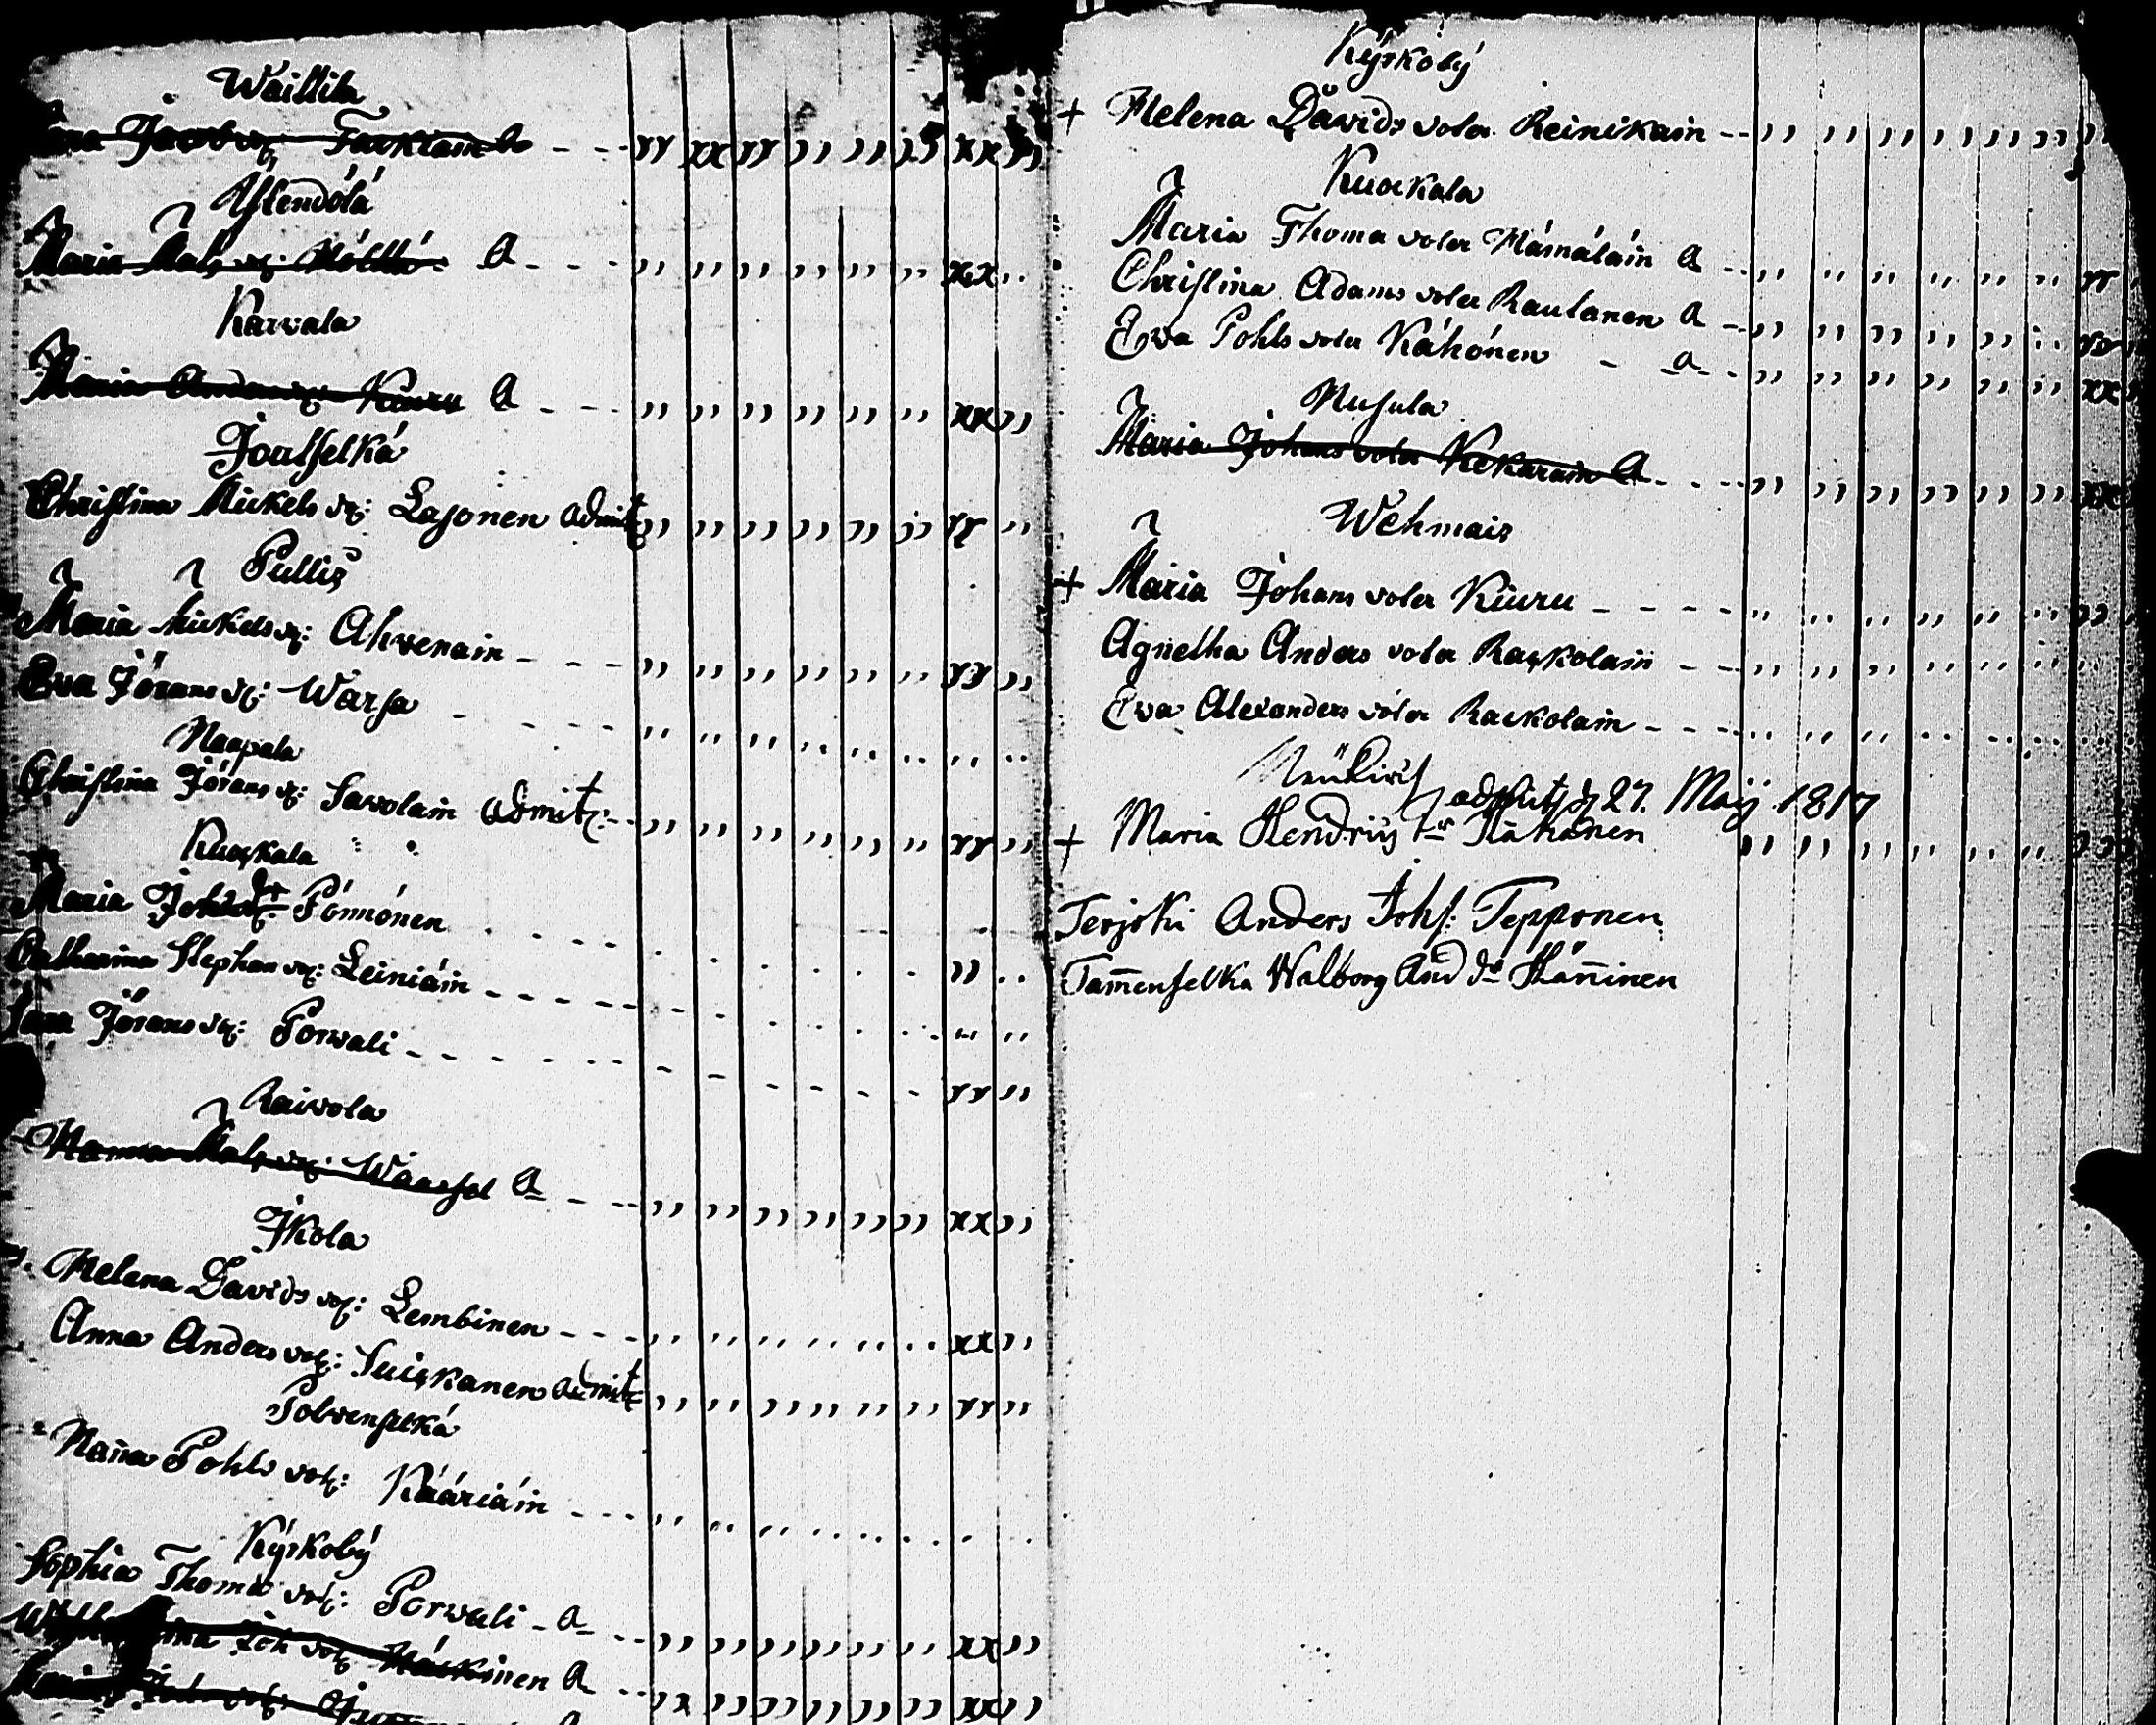 Waittila
Jacobs dr: A
Ylendölä
Maria Mats dr: Mölltö: A
Karvala
Maria Anders dr: Kiuru A
Joutselkä
Christina Mickels dr: Lasonen admit:
Pullis
Maria Mickels dr: Ahvenain
Eva Jörans dr: Warsa
Haapala
Christina Jörans dr: Savolain admit:
Kuockala
Maria Johs dr: Pönnönen
Catharina Stephans dr: Leiniäin
Jörans dr: Porvali
Raivola
Hanna Mats dr: A
Ikola
Helena Davids dr: Lembinen
Anna Anders dr: Suickanen admit:
Polvenselkä
Hanna Pohls dr: Kääriäin
Kyrkoby
Sophia Thoma dr: Porvali A
Joh dr: A
Kyrkoby
+ Helena Davids doter Reinikain
Kuockala
Maria Thoma doter Hämäläin A
Christina Adams doter Rautanen A
Ewa Pohls doter Kähönen a
Husula
Maria Johans doter Kekäräin A
Wehmais
+ Maria Johans doter Kiuru
Agnetha Anders doter Rackolain
Ewa Alexanders doter Rackolain
Neükirch admit: d 27. Maij 1817
+ Maria Hendrics dr Kähönen
Terjoki Anders Johs: Tepponen
Tammenselkä Walborg And dr Hänninen